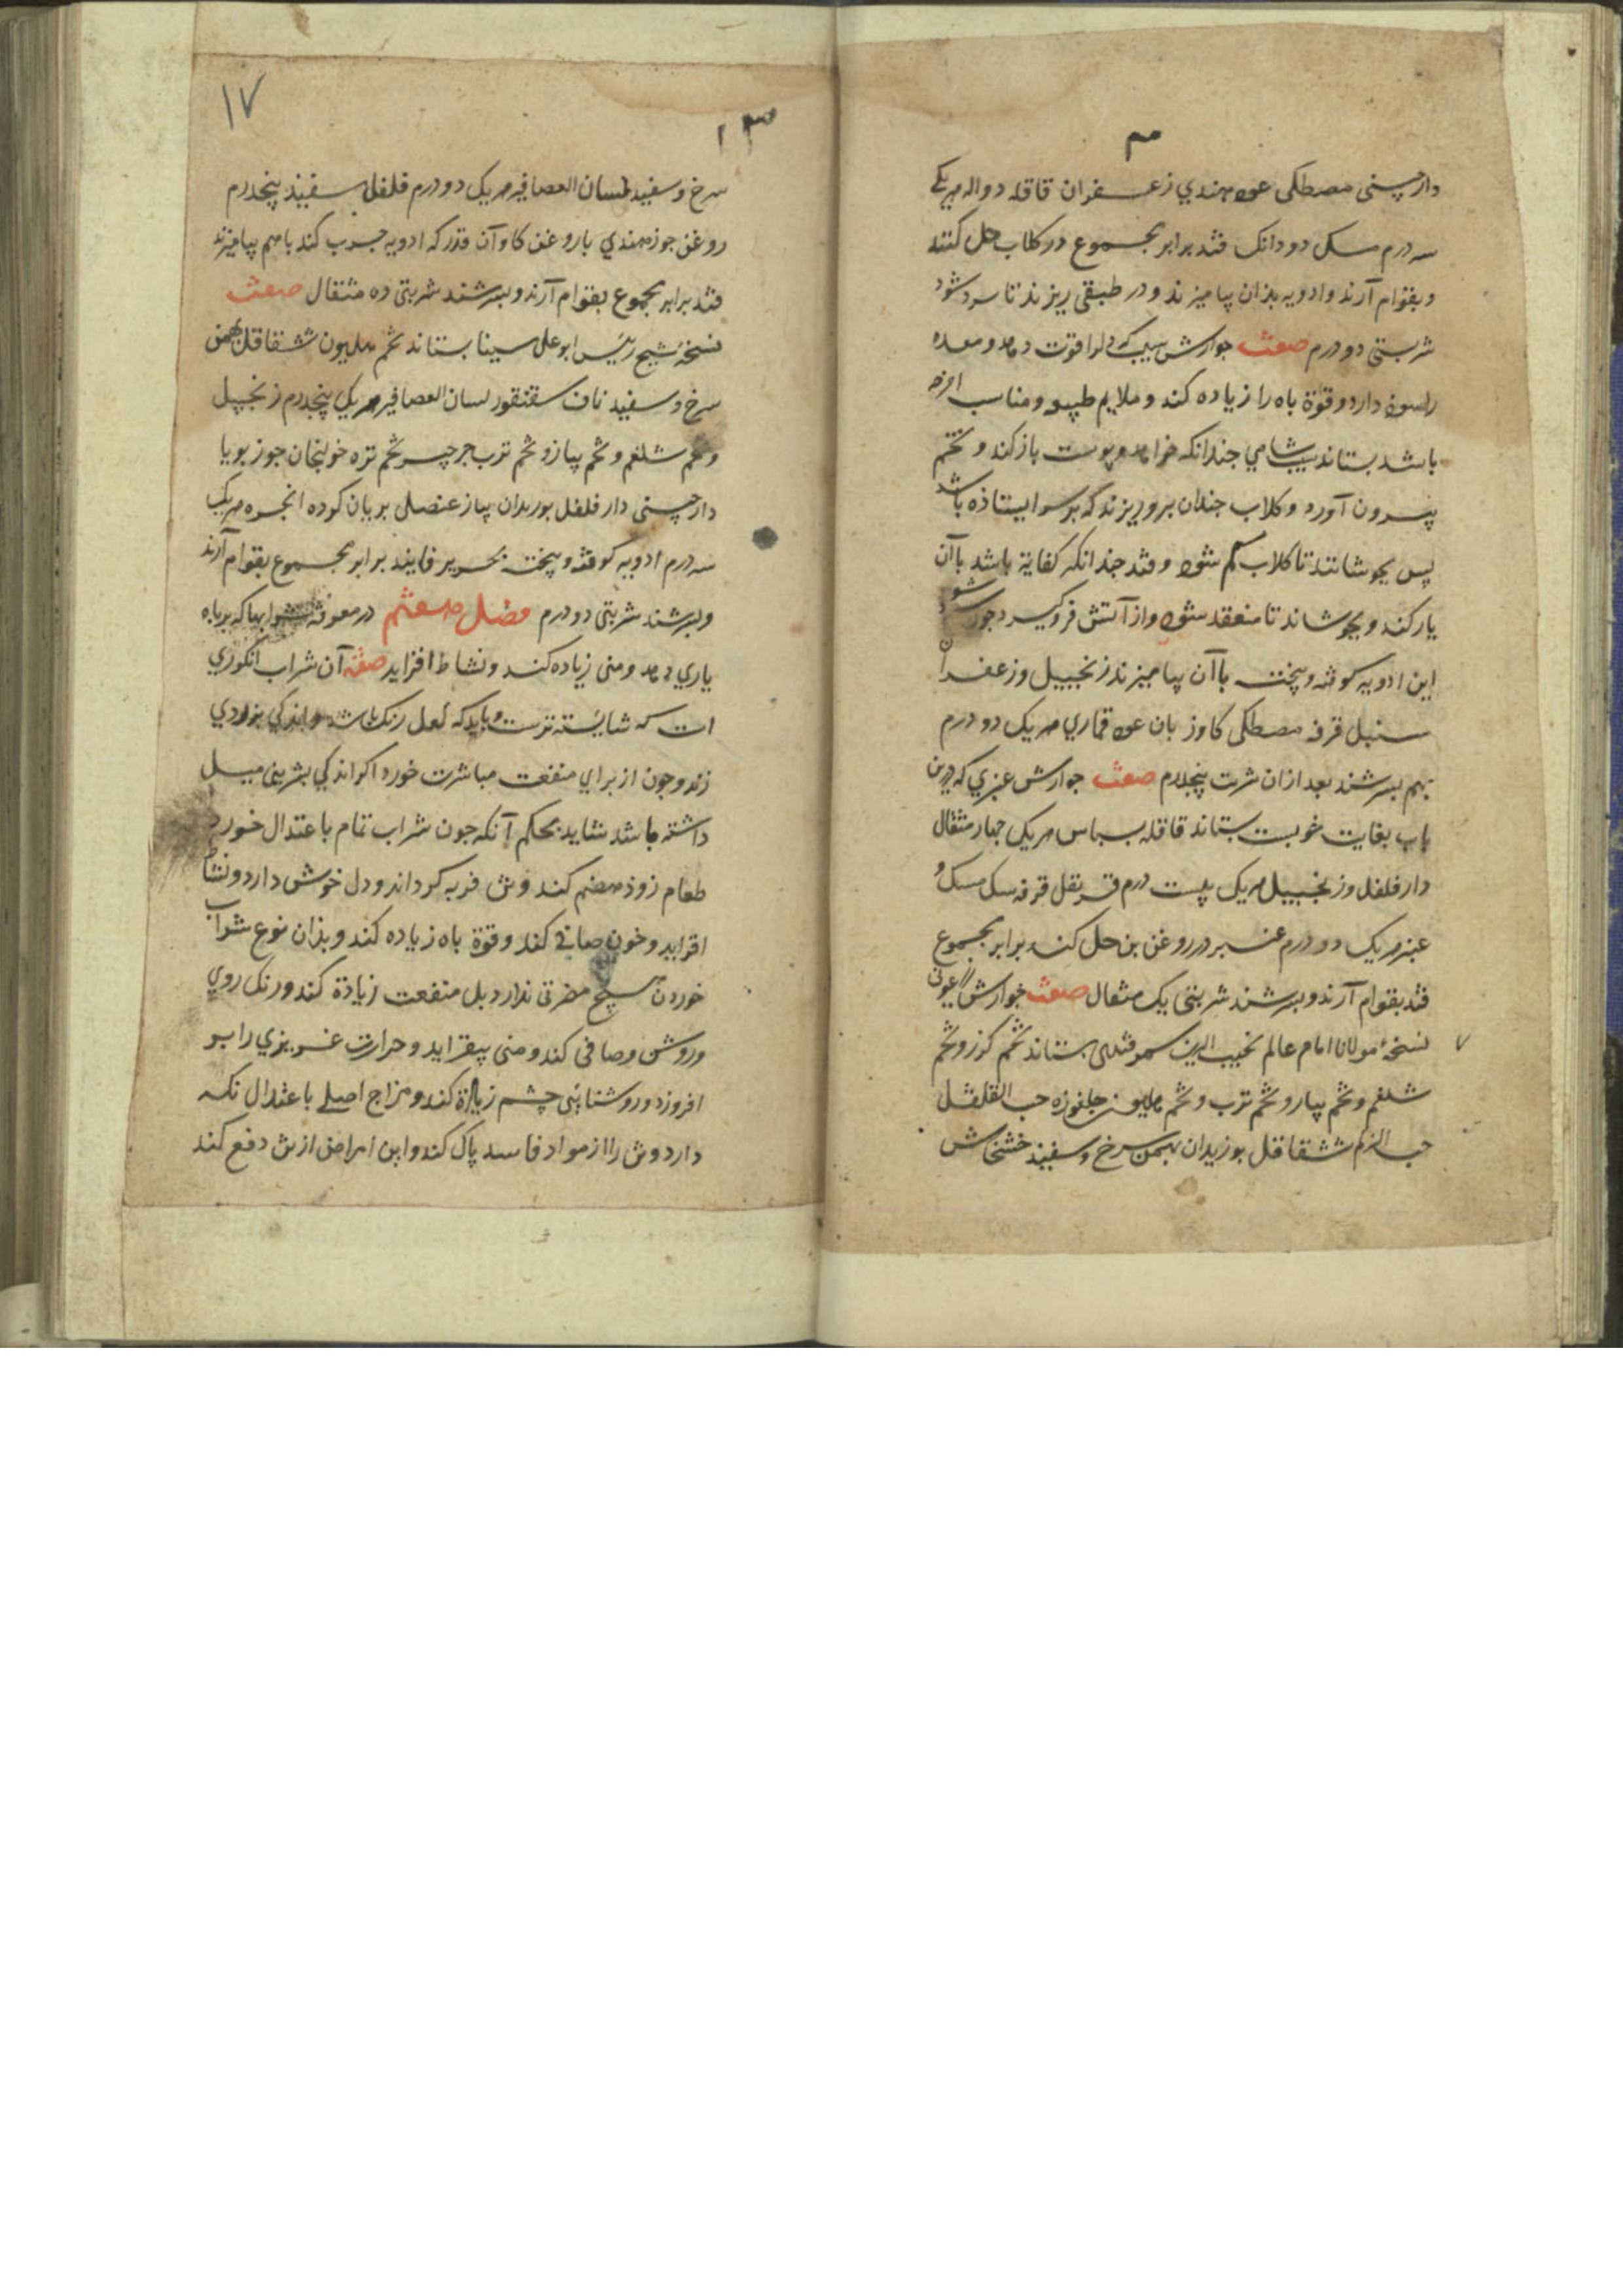 دارچینی مصطکی عود هندی زعفران قاقله دواله هر یکی
سه درم مسک دو دانک قند برابر مجموع در کلاب حل کنند
و بقوام آرند و ادویه بذان بیامیزند و در طبقی ریزند تا سرد شود
شربتی دو درم صفت جوارش سیب که دلرا قوت دهد و معده
را سود دارد و قوة باه را زیاده کند و ملایم طبع و مناسب امزجه
باشد بستاند سیب شامی جندانکه خواهد و پوست باز کند و تخم
بیرون آورد و کلاب جندان برو ریزند که بر سر ایستاذه باشد
پس بجوشانند تا کلاب کم شود و قند جندانکه کفایة باشد با آن
یار کند و بجوشاند تا منعقد شود و از آتش فروکیرد جون سرد شود
این ادویه کوفته و بیخته با آن بیامیزند زنجبیل و زعفران
سنبل قرفه مصطکی کاوزبان عود قماری هر یک دو درم
بهم بسرشند بعد از ان شربت پنجدرم صفت جوارش عنبری که درین
باب بغایت خوبست بستاند قاقله بسباس هر یکی جهار مثقال
دارفلفل و زنجبیل هر یک بیست درم قرنفل قرفه سک مسک و
عنبر هر یک دو درم عنبر در روغن بن حل کند برابر مجموع
قند بقوام آرند و بسرشند شربتی یک مثقال صفت جوارش
نسخهٔ مولانا امام عالم نجیب الدین سمرقندی بستاند تخم کزر و تخم
شلغم و تخم پیاز و تخم ترب و تخم هلیون جلغوزه حب القلقل
حب الزلم شقاقل بوزیدان بهمن سرخ و سفیذ خشخاش
١٧
١٣
سرخ و سفیذ لسان العصافیر هر یک دو درم فلفل سفیذ پنجدرم
روغن جوز هندی با روغن کاو آن قدر که ادویه جرب کند با هم بیامیزند
قند برابر مجموع بقوام آرند و بسرشند شربتی ده مثقال صفت
نسخهٔ شیخ رئیس ابوعلی سینا بستاند تخم هلیون شقاقل بهمن
سرخ و سفید ناف سقنقور لسان العصافیر هر یکی پنجدرم زنجبیل
و تخم شلغم و تخم پیاز و تخم ترب جرجیر تخم تره خولنجان جوز بویا
دارچینی دارفلفل بوزیدان پیاز عنصلی بریان کرده انجره هر یک
سه درم ادویه کوفته و بیخته بحریر فانیذ برابر مجموع بقوام آرند
و بسرشند شربتی دو درم فصل هشتم در معرفة شرابها که بر باه
یاری دهد و منی زیاده کند و نشاط افزاید صفة آن شراب انکوری
است که شایسته ترست و باید که لعل رنک باشد و اندکی بزردی
زند و جون از برای منفعت مباشرت خورد اکر اندکی بشیرینی میل
داشته باشد شاید بحکم آنکه جون شراب تمام باعتدال خورد
طعام زوذ هضم کند و تن فربه کرداند و دل خوش دارد و نشاط
افزاید و خون صافی کند و قوة باه زیاده کند و بذان نوع شراب
خوردن هیچ مضرتی ندارد بل منفعت زیادة کند و رنک روی
و روشن و صافی کند و منی بیفزاید و حرارت غریزی را بر
افروزد و روشنایی چشم زیادة کند و مزاج اصلی باعتدال نکه
دارد و تن را از مواد فاسد پاک کند و این امراض از تن دفع کند